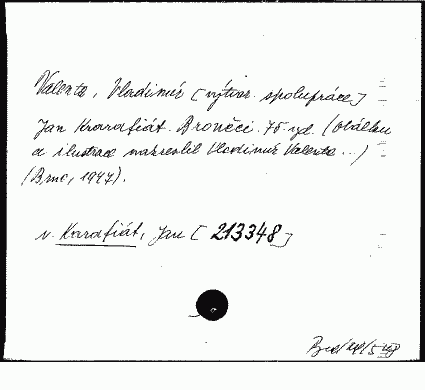 Valenta, Vladimír [výtvar. spolupráce]
Jan Karafiát. Broučci. 75. vyd. (Obálku
a ilustrace nakreslil Vladimír Valenta...)
(Brno, 1947).
v. Karafiát, Jan [213348]